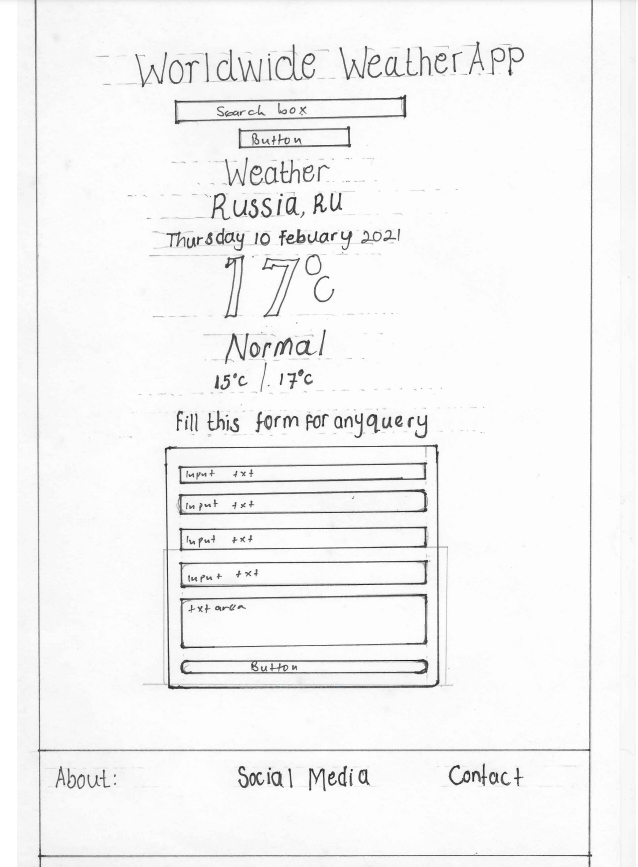 Worldwide Weather App
Search box
Button
Weather
Russia, RU
Thursday 10 Febuary 2021
17°C
Normal
15°c / 17°c
Fill this form for any query
Input txt
Input txt
Input txt
Input txt
txt area
Button
About: Social Media Contact